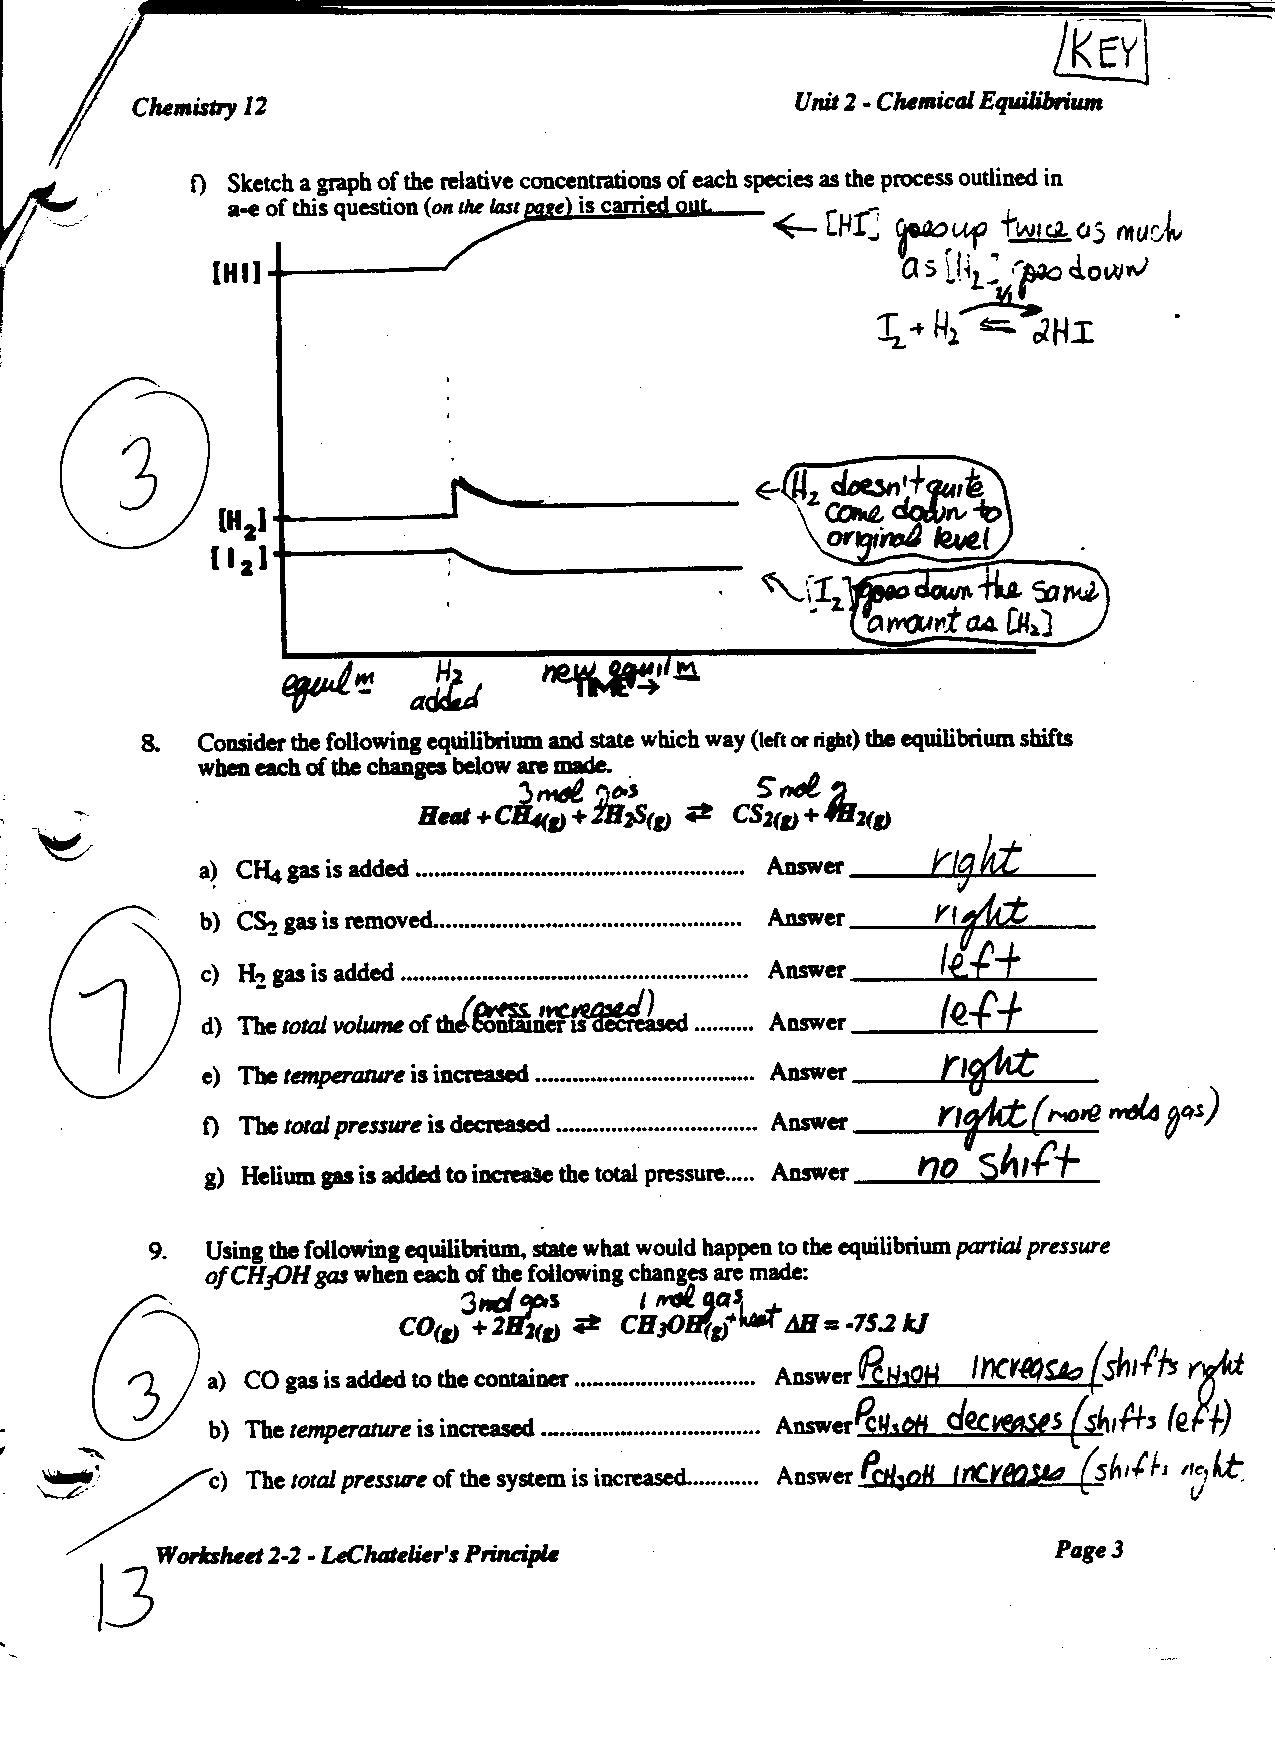 KEY
Chemistry 12
Unit 2 - Chemical Equilibrium
f) Sketch a graph of the relative concentrations of each species as the process outlined in
a-e of this question (on the last page) is carried out.
← [HI] goes up twice as much
as [H₂] goes down
I₂ + H₂ ⇌ 2HI
[HI]
3
[H₂]
[I₂]
← H₂ doesn't quite
come down to
original level
[I₂] goes down the same
amount as [H₂]
equil m
H₂
added
new equil m
TIME →
8. Consider the following equilibrium and state which way (left or right) the equilibrium shifts
when each of the changes below are made.
3 mol gas 5 mol g
Heat + CH₄(g) + 2H₂S(g) ⇄ CS₂(g) + 4H₂(g)
a) CH₄ gas is added ................................................ Answer right
b) CS₂ gas is removed............................................. Answer right
c) H₂ gas is added .................................................. Answer left
(press increased)
d) The total volume of the container is decreased .......... Answer left
e) The temperature is increased ................................ Answer right
f) The total pressure is decreased ............................. Answer right (more mols gas)
g) Helium gas is added to increase the total pressure..... Answer no shift
7
9. Using the following equilibrium, state what would happen to the equilibrium partial pressure
of CH₃OH gas when each of the following changes are made:
3 mol gas 1 mol gas
CO(g) + 2H₂(g) ⇄ CH₃OH(g) + heat ΔH = -75.2 kJ
a) CO gas is added to the container ........................... Answer PCH₃OH increases (shifts right
b) The temperature is increased ................................ Answer PCH₃OH decreases (shifts left)
c) The total pressure of the system is increased........... Answer PCH₃OH increases (shifts right
3
Worksheet 2-2 - LeChatelier's Principle
Page 3
13